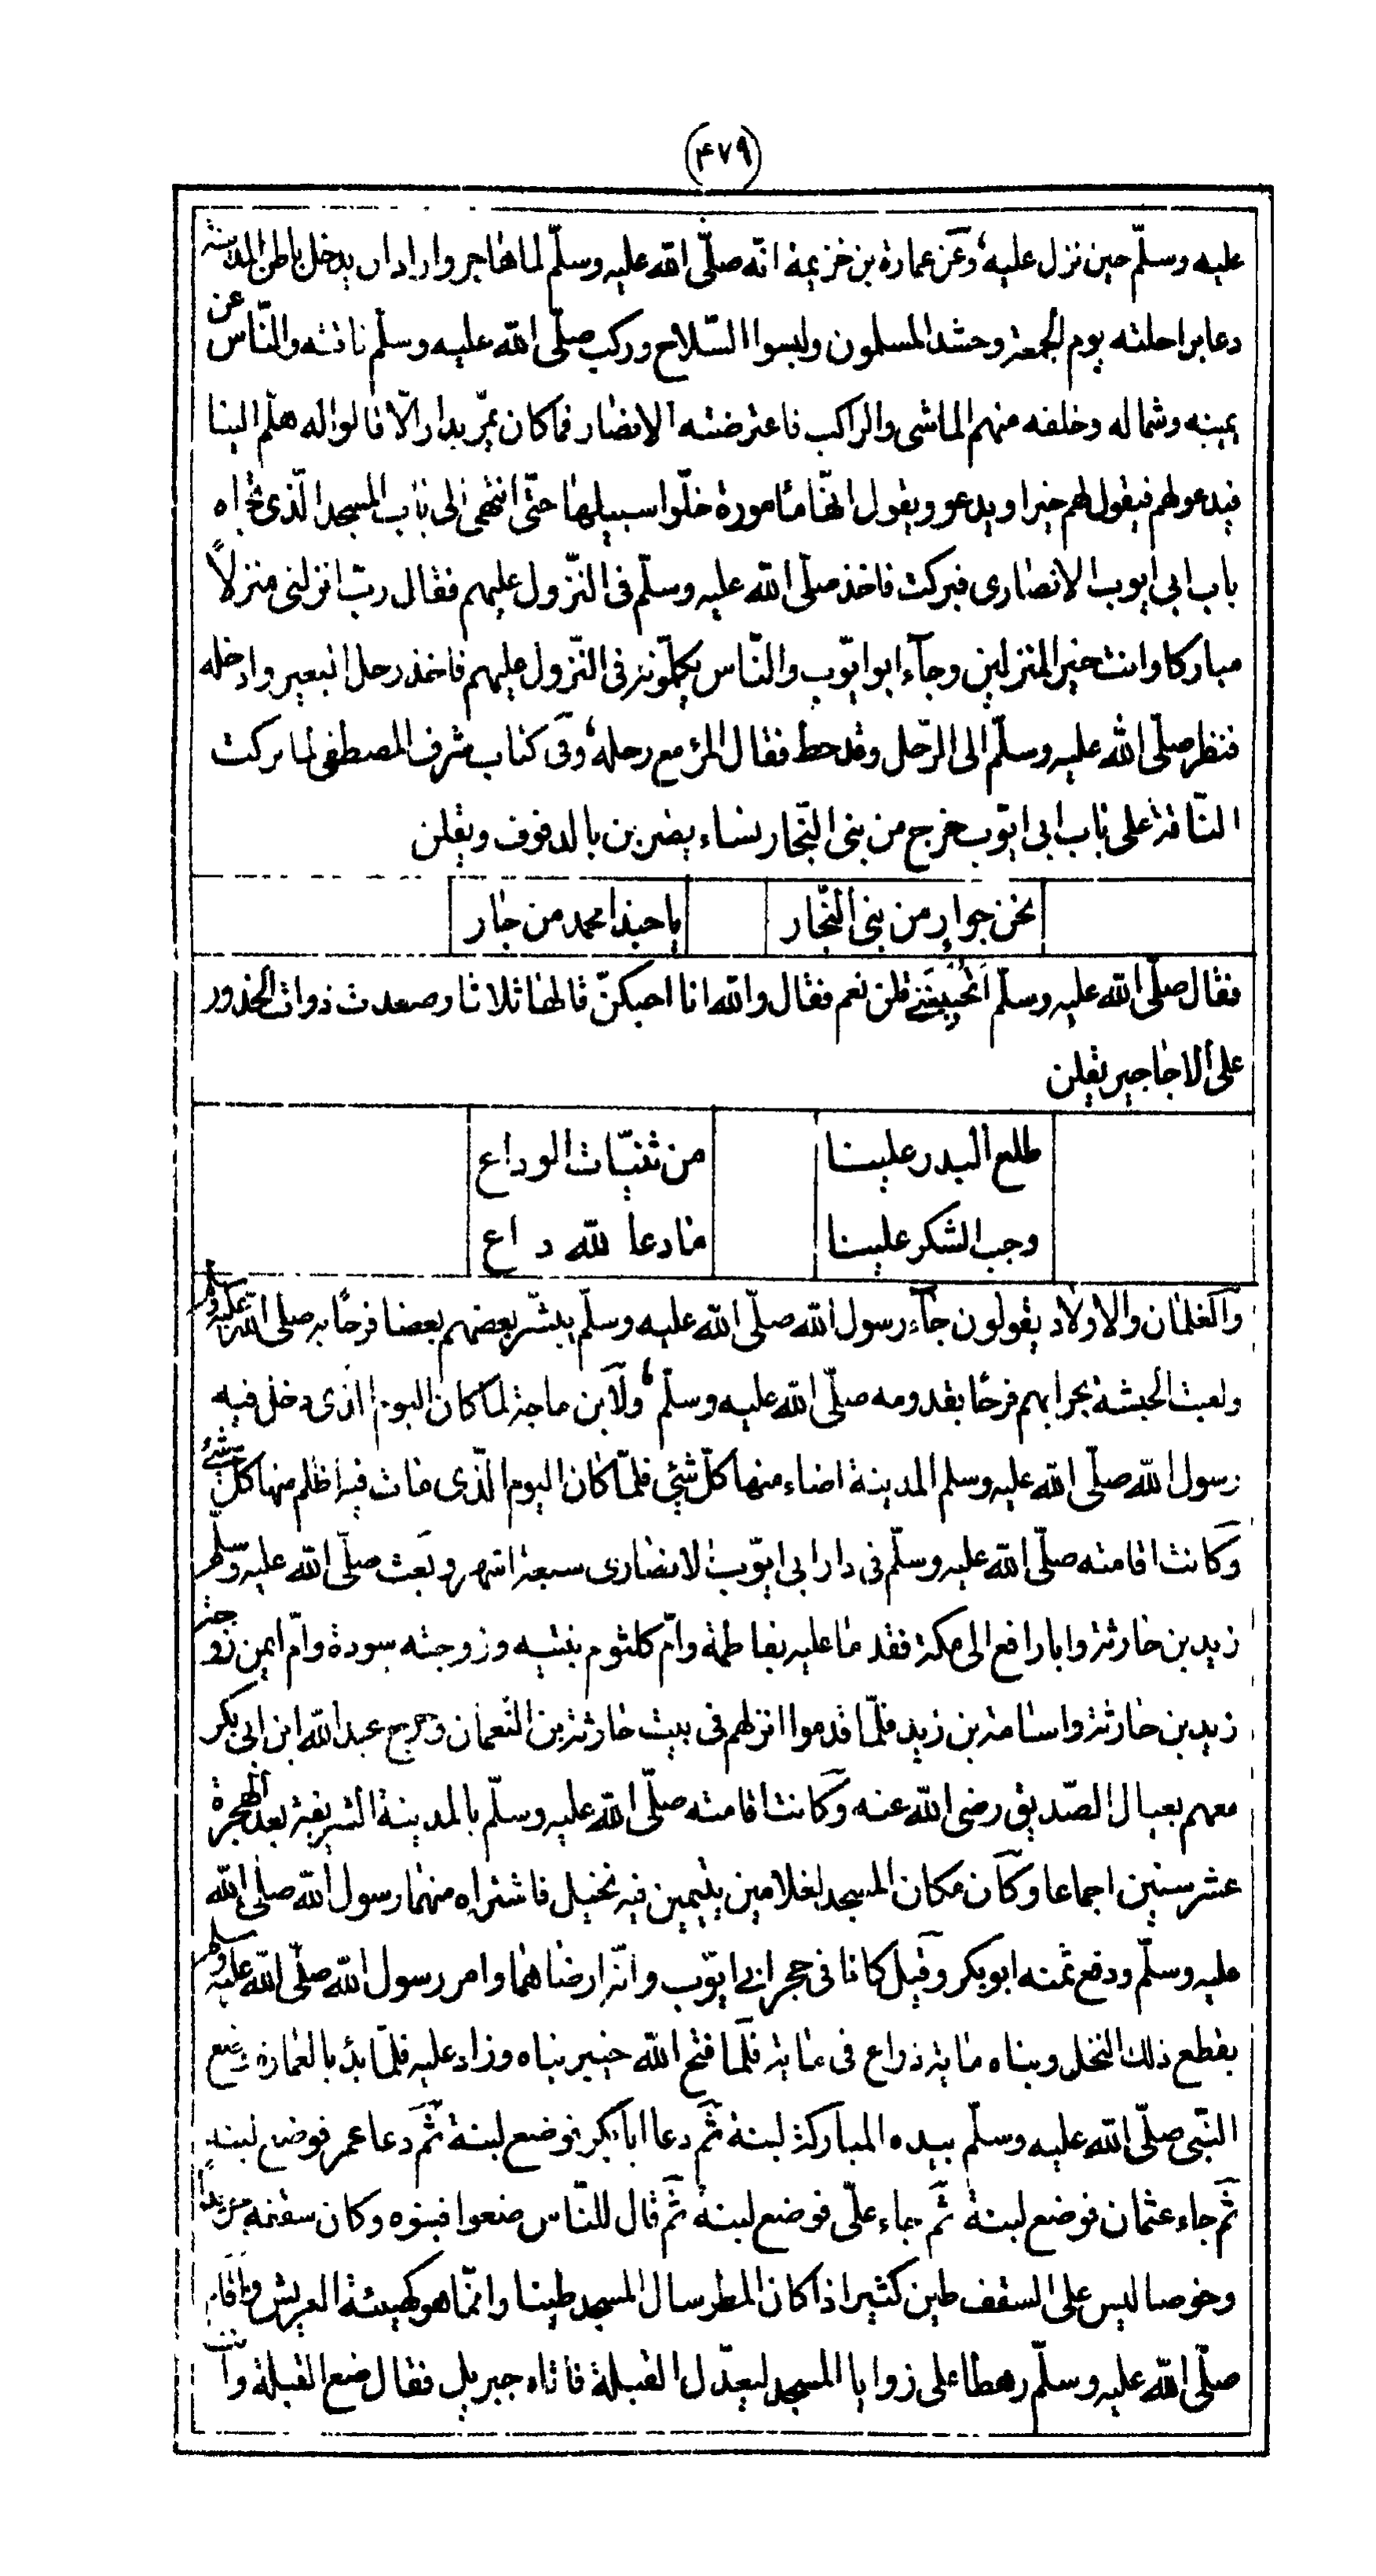 (۴۷۹)
عليه وسلّم حين نزل عليه، وعن عمارة بن خزيمة انّه صلّى الله عليه وسلّم لما هاجر واراد ان يدخل باطن المدينة
دعا براحلته يوم الجمعة وحشد المسلمون ولبسوا السّلاح وركب صلّى الله عليه وسلّم ناقته والنّاس عن
يمينه وشماله وخلفه منهم الماشى والراكب فاعترضته الانصار فما كان يمرّ بدار الّا قالوا له هلمّ الينا
فيدعو لهم فيقول لهم خيرا ويدعو ويقول انّها مامورة خلّوا سبيلها حتّى انتهى الى باب المسجد الّذى تجاه
باب ابى ايوب الانصارى فبركت فاخذ صلّى الله عليه وسلّم فى النّزول عليهم فقال ربّ انزلنى منزلاً
مباركا وانت خير المنزلين وجآء ابو ايّوب والنّاس يكلّمونه فى النّزول عليهم فاخذ رحل البعير وادخله
فنظر صلّى الله عليه وسلّم الى الرّحل وقد حط فقال المرٔ مع رحله، وفى كتاب شرف المصطفى لما بركت
النّاقة على باب ابى ايّوب خرج من بنى النّجار نساء يضربن بالدفوف ويقلن
نحن جوارٍ من بنى النّجار يا حبذا محمد من جار
فقال صلّى الله عليه وسلّم اَتُحْبِبْنَنِىْ قلن نعم فقال والله انا احبكنّ قالها ثلاثا وصعدت ذوات الخدور
على الاجاجير يقلن
طلع البدر علينا من ثنيّات الوداع
وجب الشكر علينا ما دعا لله داع
والغلمان والاولاد يقولون جآء رسول الله صلّى الله عليه وسلّم يبشّر بعضهم بعضا فرحًا به صلى الله عليه وسلم
ولعبت الحبشة بحرابهم فرحًا بقدومه صلّى الله عليه وسلّم، ولابن ماجة لما كان اليوم الذى دخل فيه
رسول الله صلّى الله عليه وسلم المدينة اضاء منها كلّ شئ فلمّا كان اليوم الّذى مات فيه اظلم منها كلّ شئ
وكانت اقامته صلّى الله عليه وسلّم فى دار ابى ايّوب الانصارى سبعة اشهر وبعث صلّى الله عليه وسلّم
زيد بن حارثة وابا رافع الى مكة فقدما عليه بفاطمة وامّ كلثوم بنتيه وزوجته سودة وامّ ايمن زوجة
زيد بن حارثة واسامة بن زيد فلمّا قدموا انزلهم فى بيت حارثة بن النعمان وخرج عبد الله ابن ابى بكر
معهم بعيال الصّديق رضى الله عنه وكانت اقامته صلّى الله عليه وسلّم بالمدينة الشريفة بعد الهجرة
عشر سنين اجماعا وكان مكان المسجد لغلامين يتيمين فيه نخيل فاشتراه منهما رسول الله صلى الله
عليه وسلّم ودفع ثمنه ابو بكر وقيل كانا فى حجر ابى ايّوب وانّه ارضاهما وامر رسول الله صلّى الله عليه وسلم
بقطع ذلك النخل وبناه ماية ذراع فى ماية فلما فتح الله خيبر بناه وزاد عليه فلمّا بدٔ بالعمارة وضع
النّبى صلّى الله عليه وسلّم بيده المباركة لبنة ثمّ دعا ابا بكر فوضع لبنة ثمّ دعا عمر فوضع لبنة
ثمّ جاء عثمان فوضع لبنة ثمّ جاء علىّ فوضع لبنة ثمّ قال للنّاس ضعوا فبنوه وكان سقفه جريدا
وخوصا ليس على السقف طين كثير اذا كان المطر سال المسجد طينا وانّما هو كهيئة العريش واقام
صلّى الله عليه وسلّم رهطا على زوايا المسجد ليعدّل القبلة فاتاه جبريل فقال ضع القبلة وانت